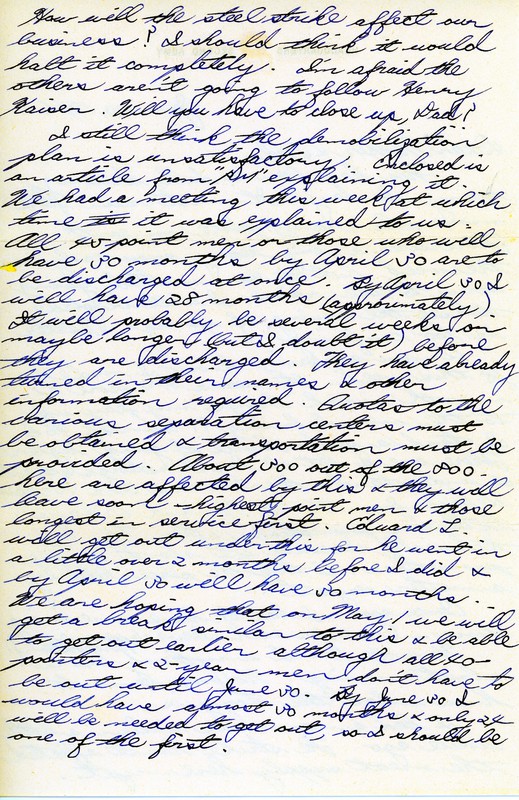 How will the steel strike affect our
business? I should think it would
halt it completely. I'm afraid the
others aren't going to follow Henry
Kaiser. Will you have to close up, Dad?
I still think the demobilization
plan is unsatisfactory. Enclosed is
an article from explaining it.
We had a meeting this week at which
time is it was explained to us.
All 45 point men or those who will
have 30 months by April 30 are to
be discharged at once. By April 30 I
will have 28 months (approximately)
It will probably be several weeks (or
maybe longer but I doubt it) before
they are discharged. They have already
turned in their names & other
information required. Quotas to the
various separation centers must
be obtained & transportation must be
provided. About 300 out of the 800
here are affected by this & they will
leave soon - highest point men & those
longest in service first. Edward L.
will get out under this for he went in
a little over 2 months before I did &
by April 30 will have 30 months.
We are hoping that on May 1 we will
get a break similar to this & be able
to get out earlier although all 40-
pointers & 2-year men don't have to
be out until June 30. By June 30 I
would have almost 30 months & only 24
will be needed to get out, so I should be
one of the first.